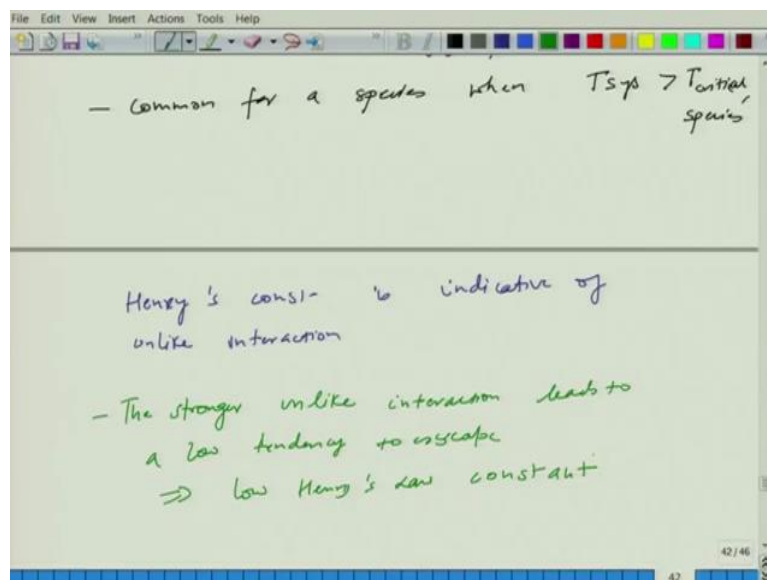 File Edit View Insert Actions Tools Help
— Common for a species when Tsys > Tcritical,
species
Henry's const- is indicative of
unlike interaction
— The stronger unlike interaction leads to
a low tendency to esscape
⇒ low Henry's Law constant
42/46
42